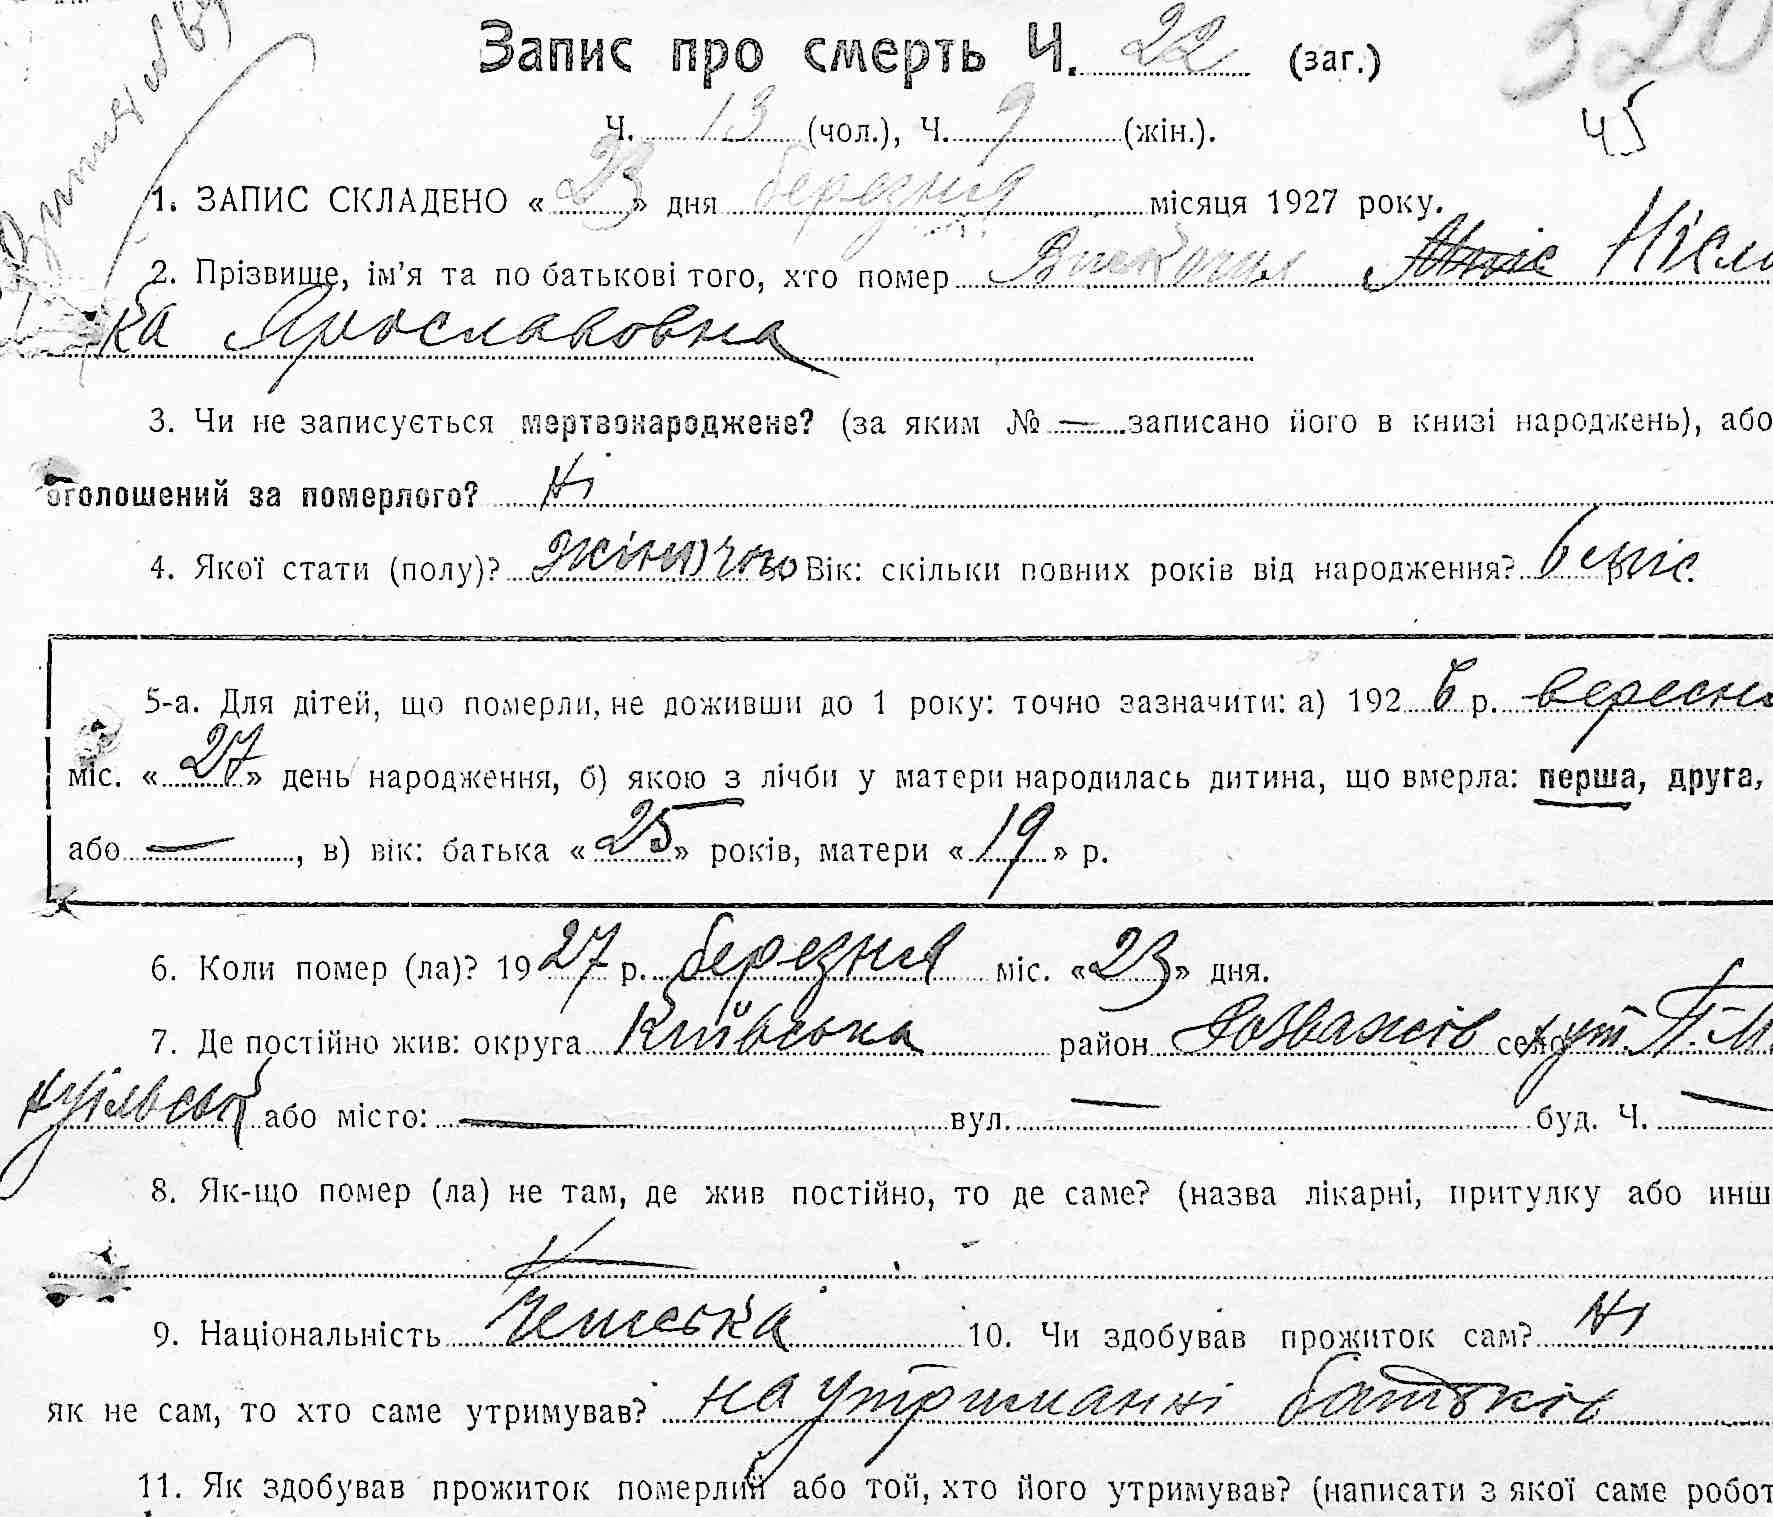 Запис про смерть Ч. 22 (заг.)
520
45
Ч. 13 (чол.), Ч. 9 (жін.).
1. ЗАПИС СКЛАДЕНО « 23 » дня березня місяця 1927 року.
2. Прізвище, ім'я та по батькові того, хто помер Вискочил
ка Ярославовна
3. Чи не записується мертвонароджене? (за яким № — записано його в книзі народжень), або
оголошений за померлого? Ні
4. Якої стати (полу)? жіночого Вік: скільки повних років від народження? 6 міс.
5-а. Для дітей, що померли, не доживши до 1 року: точно зазначити: а) 192 6 р. вересня
міс. « 27 » день народження, б) якою з лічби у матери народилась дитина, що вмерла: перша, друга,
або —, в) вік: батька « 25 » років, матери « 19 » р.
6. Коли помер (ла)? 19 27 р. березня міс. « 23 » дня.
7. Де постійно жив: округа Київська район Розважів село хут. П. М.
або місто: — вул. — буд. Ч. —
8. Як-що помер (ла) не там, де жив постійно, то де саме? (назва лікарні, притулку або инш
9. Національність Чешська 10. Чи здобував прожиток сам? Ні
як не сам, то хто саме утримував? на утриманні батьків
11. Як здобував прожиток померлий або той, хто його утримував? (написати з якої саме робот